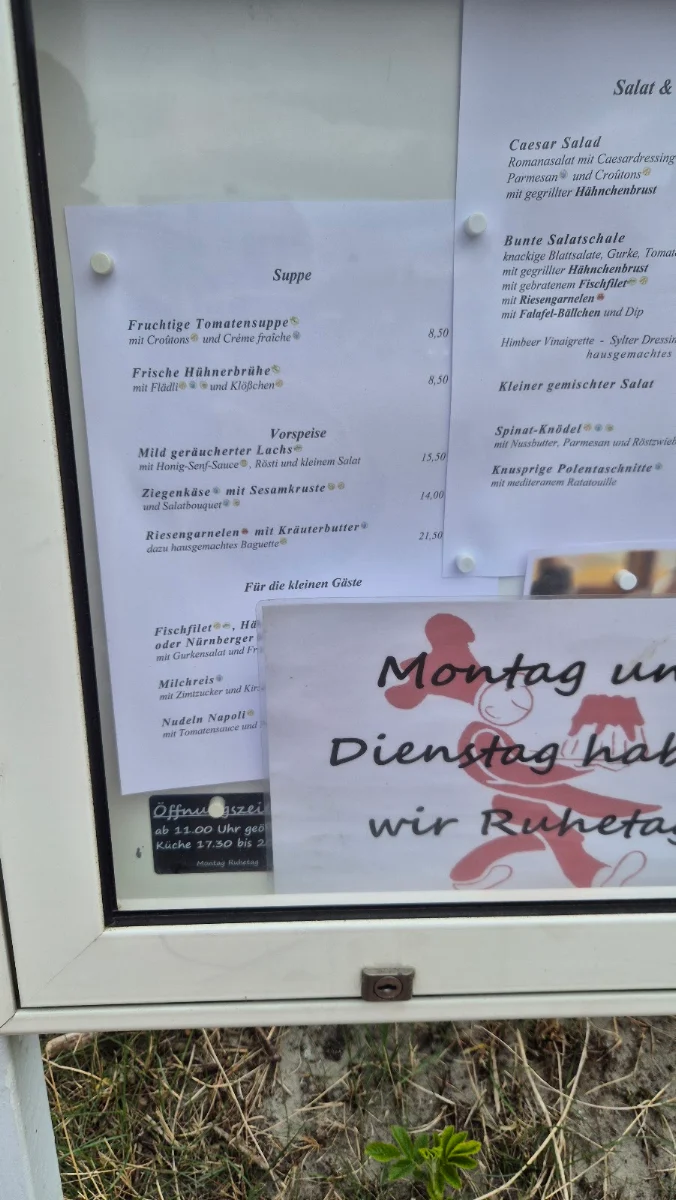 Suppe
Fruchtige Tomatensuppe
mit Croûtons und Crème fraîche 8,50
Frische Hühnerbrühe
mit Flädli und Klößchen 8,50
Vorspeise
Mild geräucherter Lachs
mit Honig-Senf-Sauce, Rösti und kleinem Salat 15,50
Ziegenkäse mit Sesamkruste 14,00
und Salatbouquet
Riesengarnelen mit Kräuterbutter 21,50
dazu hausgemachtes Baguette
Für die kleinen Gäste
Fischfilet, Hä
oder Nürnberger
mit Gurkensalat und Fr
Milchreis
mit Zimtzucker und Kir
Nudeln Napoli
mit Tomatensauce und
Salat &
Caesar Salad
Romanasalat mit Caesardressing
Parmesan und Croûtons
mit gegrillter Hähnchenbrust
Bunte Salatschale
knackige Blattsalate, Gurke, Tomat
mit gegrillter Hähnchenbrust
mit gebratenem Fischfilet
mit Riesengarnelen
mit Falafel-Bällchen und Dip
Himbeer Vinaigrette - Sylter Dressin
hausgemachtes
Kleiner gemischter Salat
Spinat-Knödel
mit Nussbutter, Parmesan und Röstzwieb
Knusprige Polentaschnitte
mit mediteranem Ratatouille
Montag un
Dienstag hab
wir Ruhetag
Öffnungszei
ab 11.00 Uhr geö
Küche 17.30 bis 2
Montag Ruhetag